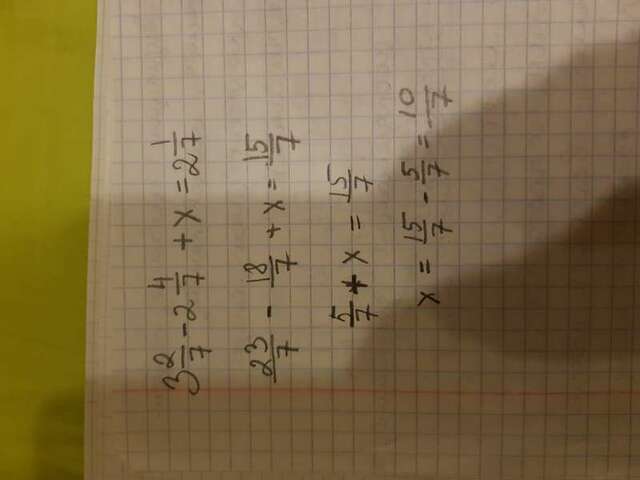 3 2/7 - 2 4/7 + x = 2 1/7
23/7 - 18/7 + x = 15/7
5/7 + x = 15/7
x = 15/7 - 5/7 = 10/7